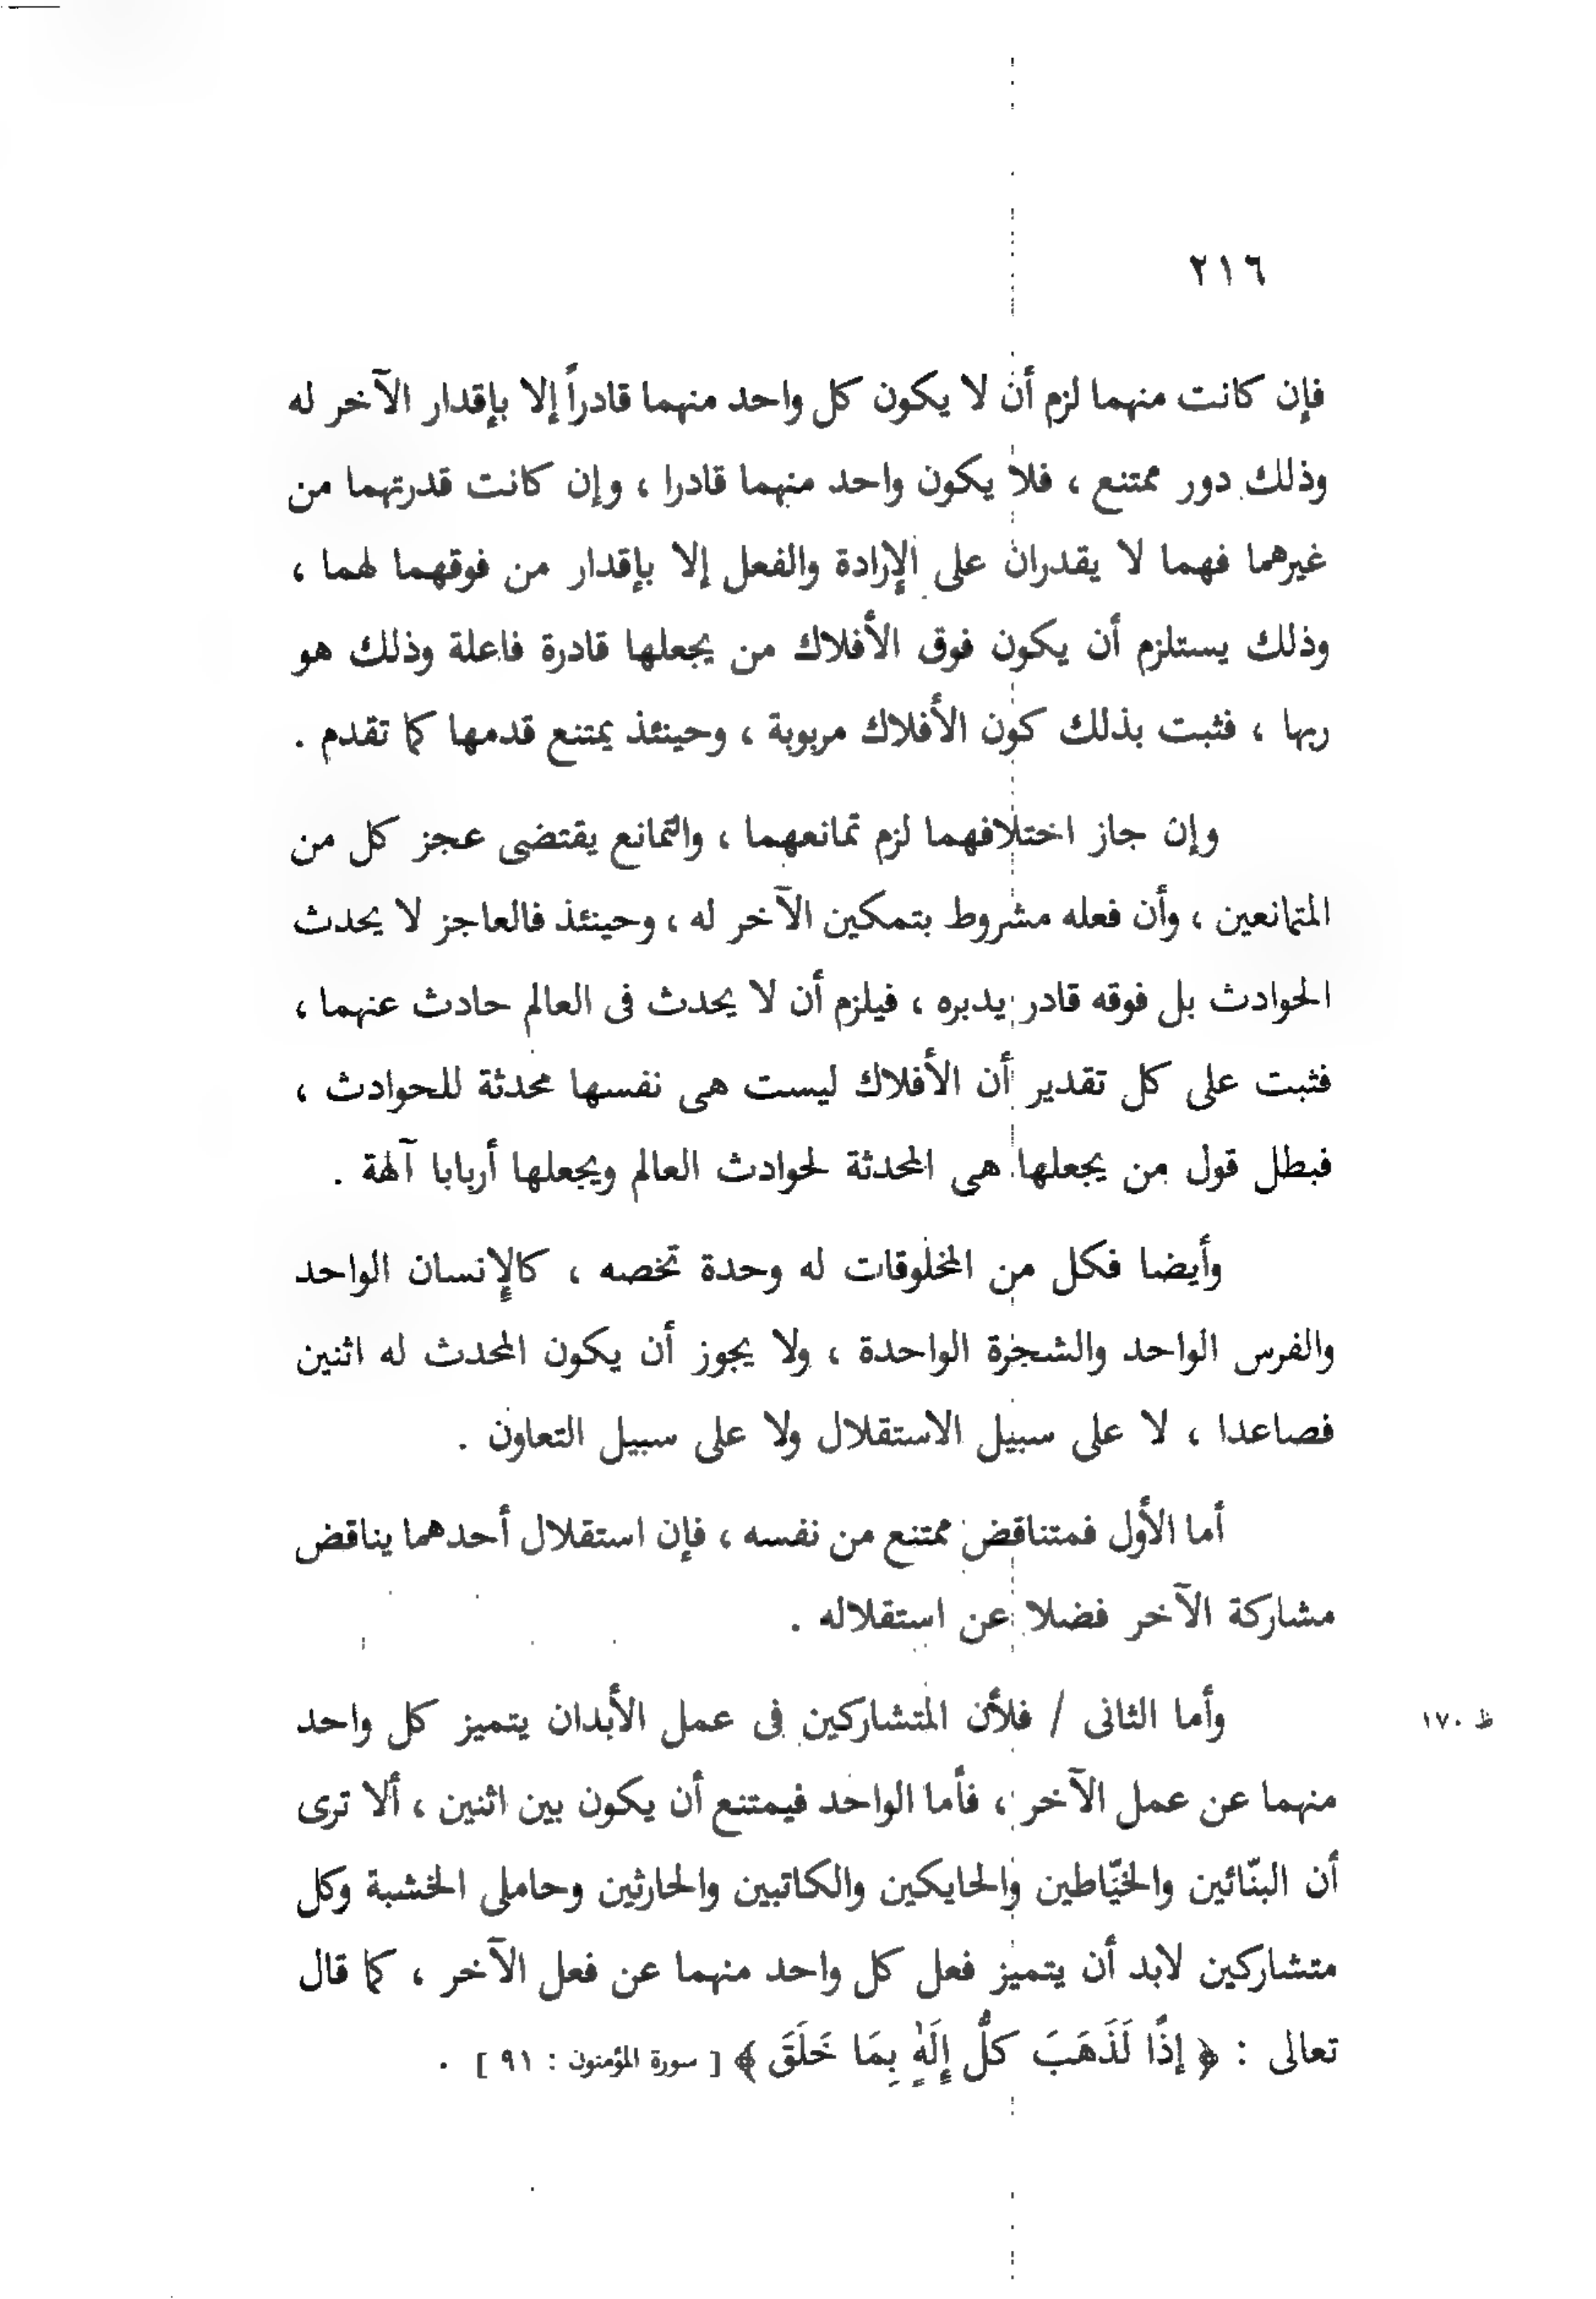 ٢١٦
فإن كانت منهما لزم أن لا يكون كل واحد منهما قادراً إلا بإقدار الآخر له
وذلك دور ممتنع ، فلا يكون واحد منهما قادرا ، وإن كانت قدرتهما من
غيرهما فهما لا يقدران على الإرادة والفعل إلا بإقدار من فوقهما لهما ،
وذلك يستلزم أن يكون فوق الأفلاك من يجعلها قادرة فاعلة وذلك هو
ربها ، فثبت بذلك كون الأفلاك مربوبة ، وحينئذ يمتنع قدمها كما تقدم .
وإن جاز اختلافهما لزم تمانعهما ، والتمانع يقتضى عجز كل من
المتمانعين ، وأن فعله مشروط بتمكين الآخر له ، وحينئذ فالعاجز لا يحدث
الحوادث بل فوقه قادر يدبره ، فيلزم أن لا يحدث فى العالم حادث عنهما ،
فثبت على كل تقدير أن الأفلاك ليست هى نفسها محدثة للحوادث ،
فبطل قول من يجعلها هى المحدثة لحوادث العالم ويجعلها أربابا آلهة .
وأيضا فكل من المخلوقات له وحدة تخصه ، كالإنسان الواحد
والفرس الواحد والشجرة الواحدة ، ولا يجوز أن يكون المحدث له اثنين
فصاعدا ، لا على سبيل الاستقلال ولا على سبيل التعاون .
أما الأول فمتناقض ممتنع من نفسه ، فإن استقلال أحدهما يناقض
مشاركة الآخر فضلا عن استقلاله .
وأما الثانى / فلأن المتشاركين فى عمل الأبدان يتميز كل واحد
ظ ١٧٠
منهما عن عمل الآخر ، فأما الواحد فيمتنع أن يكون بين اثنين ، ألا ترى
أن البنّائين والخيّاطين والحايكين والكاتبين والحارثين وحاملى الخشبة وكل
متشاركين لابد أن يتميز فعل كل واحد منهما عن فعل الآخر ، كما قال
تعالى : ﴿ إذًا لَذَهَبَ كلُّ إِلَهٍ بِمَا خَلَقَ ﴾ [ سورة المؤمنون : ٩١ ] .